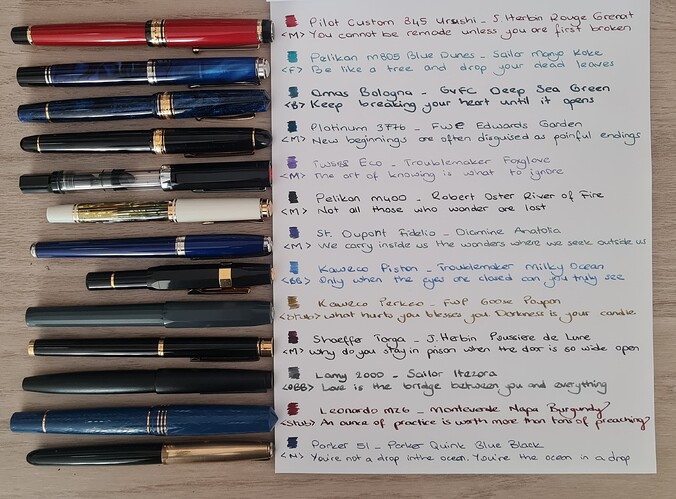 Pilot Custom 845 Urushi - S. Herbin Rouge Grenat
<M> You cannot be remade unless you are first broken
Pelikan M805 Blue Dunes - Sailor Manyo Koke
<F> Be like a tree and drop your dead leaves
Omas Bologna - GvFC Deep Sea Green
<B> Keep breaking your heart until it opens
Platinum 3776 - FWP Edwards Garden
<M> New beginnings are often disguised as painful endings
Twsbi Eco - Troublemaker Foxglove
<M> The art of knowing is what to ignore
Pelikan M400 - Robert Oster River of Fire
<M> Not all those who wander are lost
St. Dupont Fidelio - Diamine Anatolia
<M> We carry inside us the wonders where we seek outside us
Kaweco Piston - Troublemaker Milky Ocean
<BB> Only when the eyes are closed can you truly see
Kaweco Perkeo - FWP Goose Poupon
<Stub> What hurts you blesses you. Darkness is your candle
Sheaffer Targa - J. Herbin Poussiere de Lune
<M> Why do you stay in prison when the door is so wide open
Lamy 2000 - Sailor Itezora
<OBB> Love is the bridge between you and everything
Leonardo MZG - Monteverde Napa Burgundy
<Stub> An ounce of practice is worth more than tons of preaching
Parker 51 - Parker Quink Blue Black
<M> You're not a drop in the ocean. You're the ocean in a drop